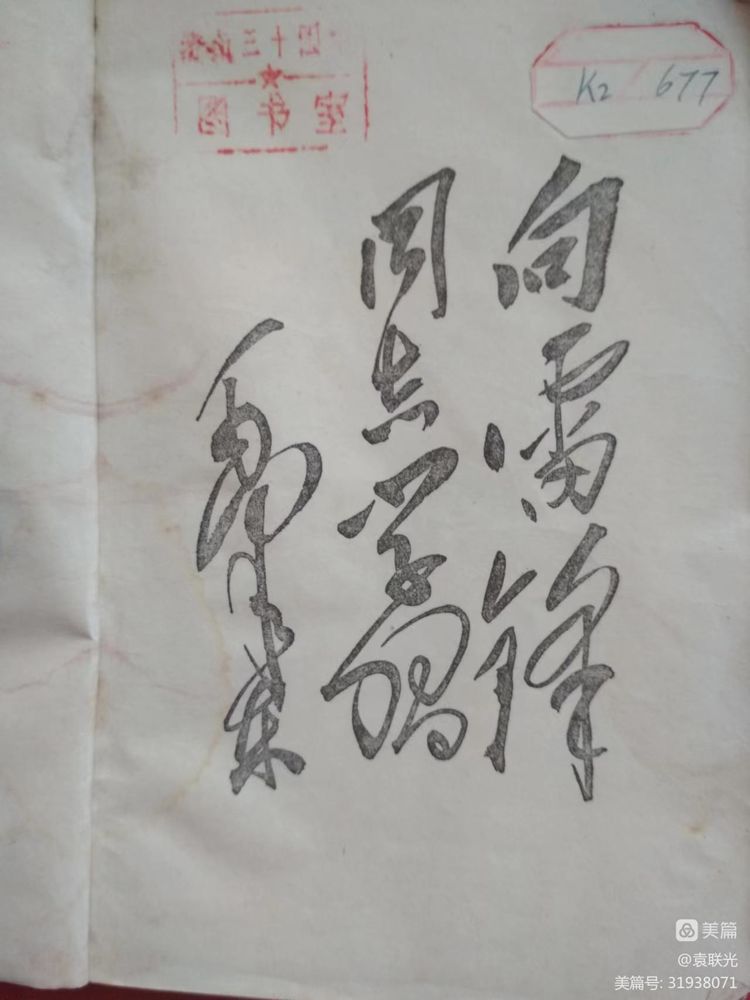 三十四
图书室
K2 677
向雷锋
同志学習
毛泽东
美篇
@袁联光
美篇号: 31938071